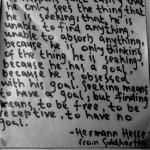 he only sees the thing that
he is seeking; that he is
unable to find anything,
unable to absorb anything,
because he is only thinking
of the thing he is seeking,
because he has a goal,
because he is obsessed
with his goal. Seeking means:
to have a goal; but finding
means: to be free, to be
receptive, to have no
goal.
-Hermann Hesse
from Siddhartha